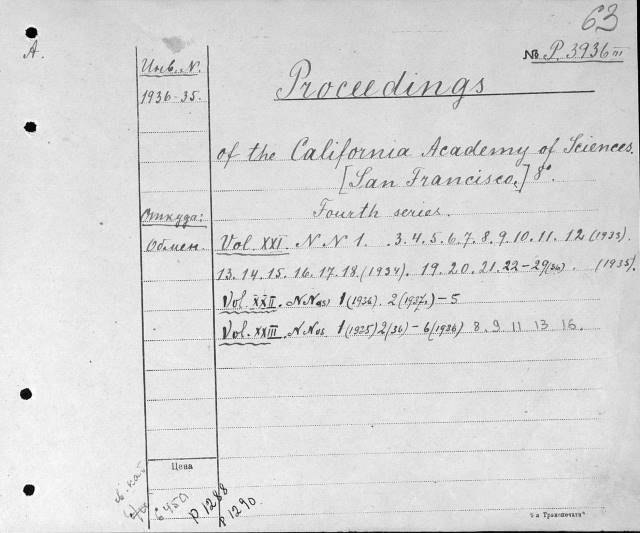 63
A.
№ P. 3936 III
Инв. N.
1936-35.
Proceedings
of the California Academy of Sciences.
[San Francisco,] 8°.
Fourth series.
Откуда:
Обмен.
Vol. XXI. N N 1. 3.4.5.6.7.8.9.10.11.12 (1933)
13.14.15.16.17.18.(1934). 19.20.21.22-29(36). (1935).
Vol. XXII. NNos 1(1936). 2(1937)-5
Vol. XXIII. NNos 1(1935)2(36)-6(1936) 8. 9. 11 13 16.
Цена
6450
P 1288
P 1290